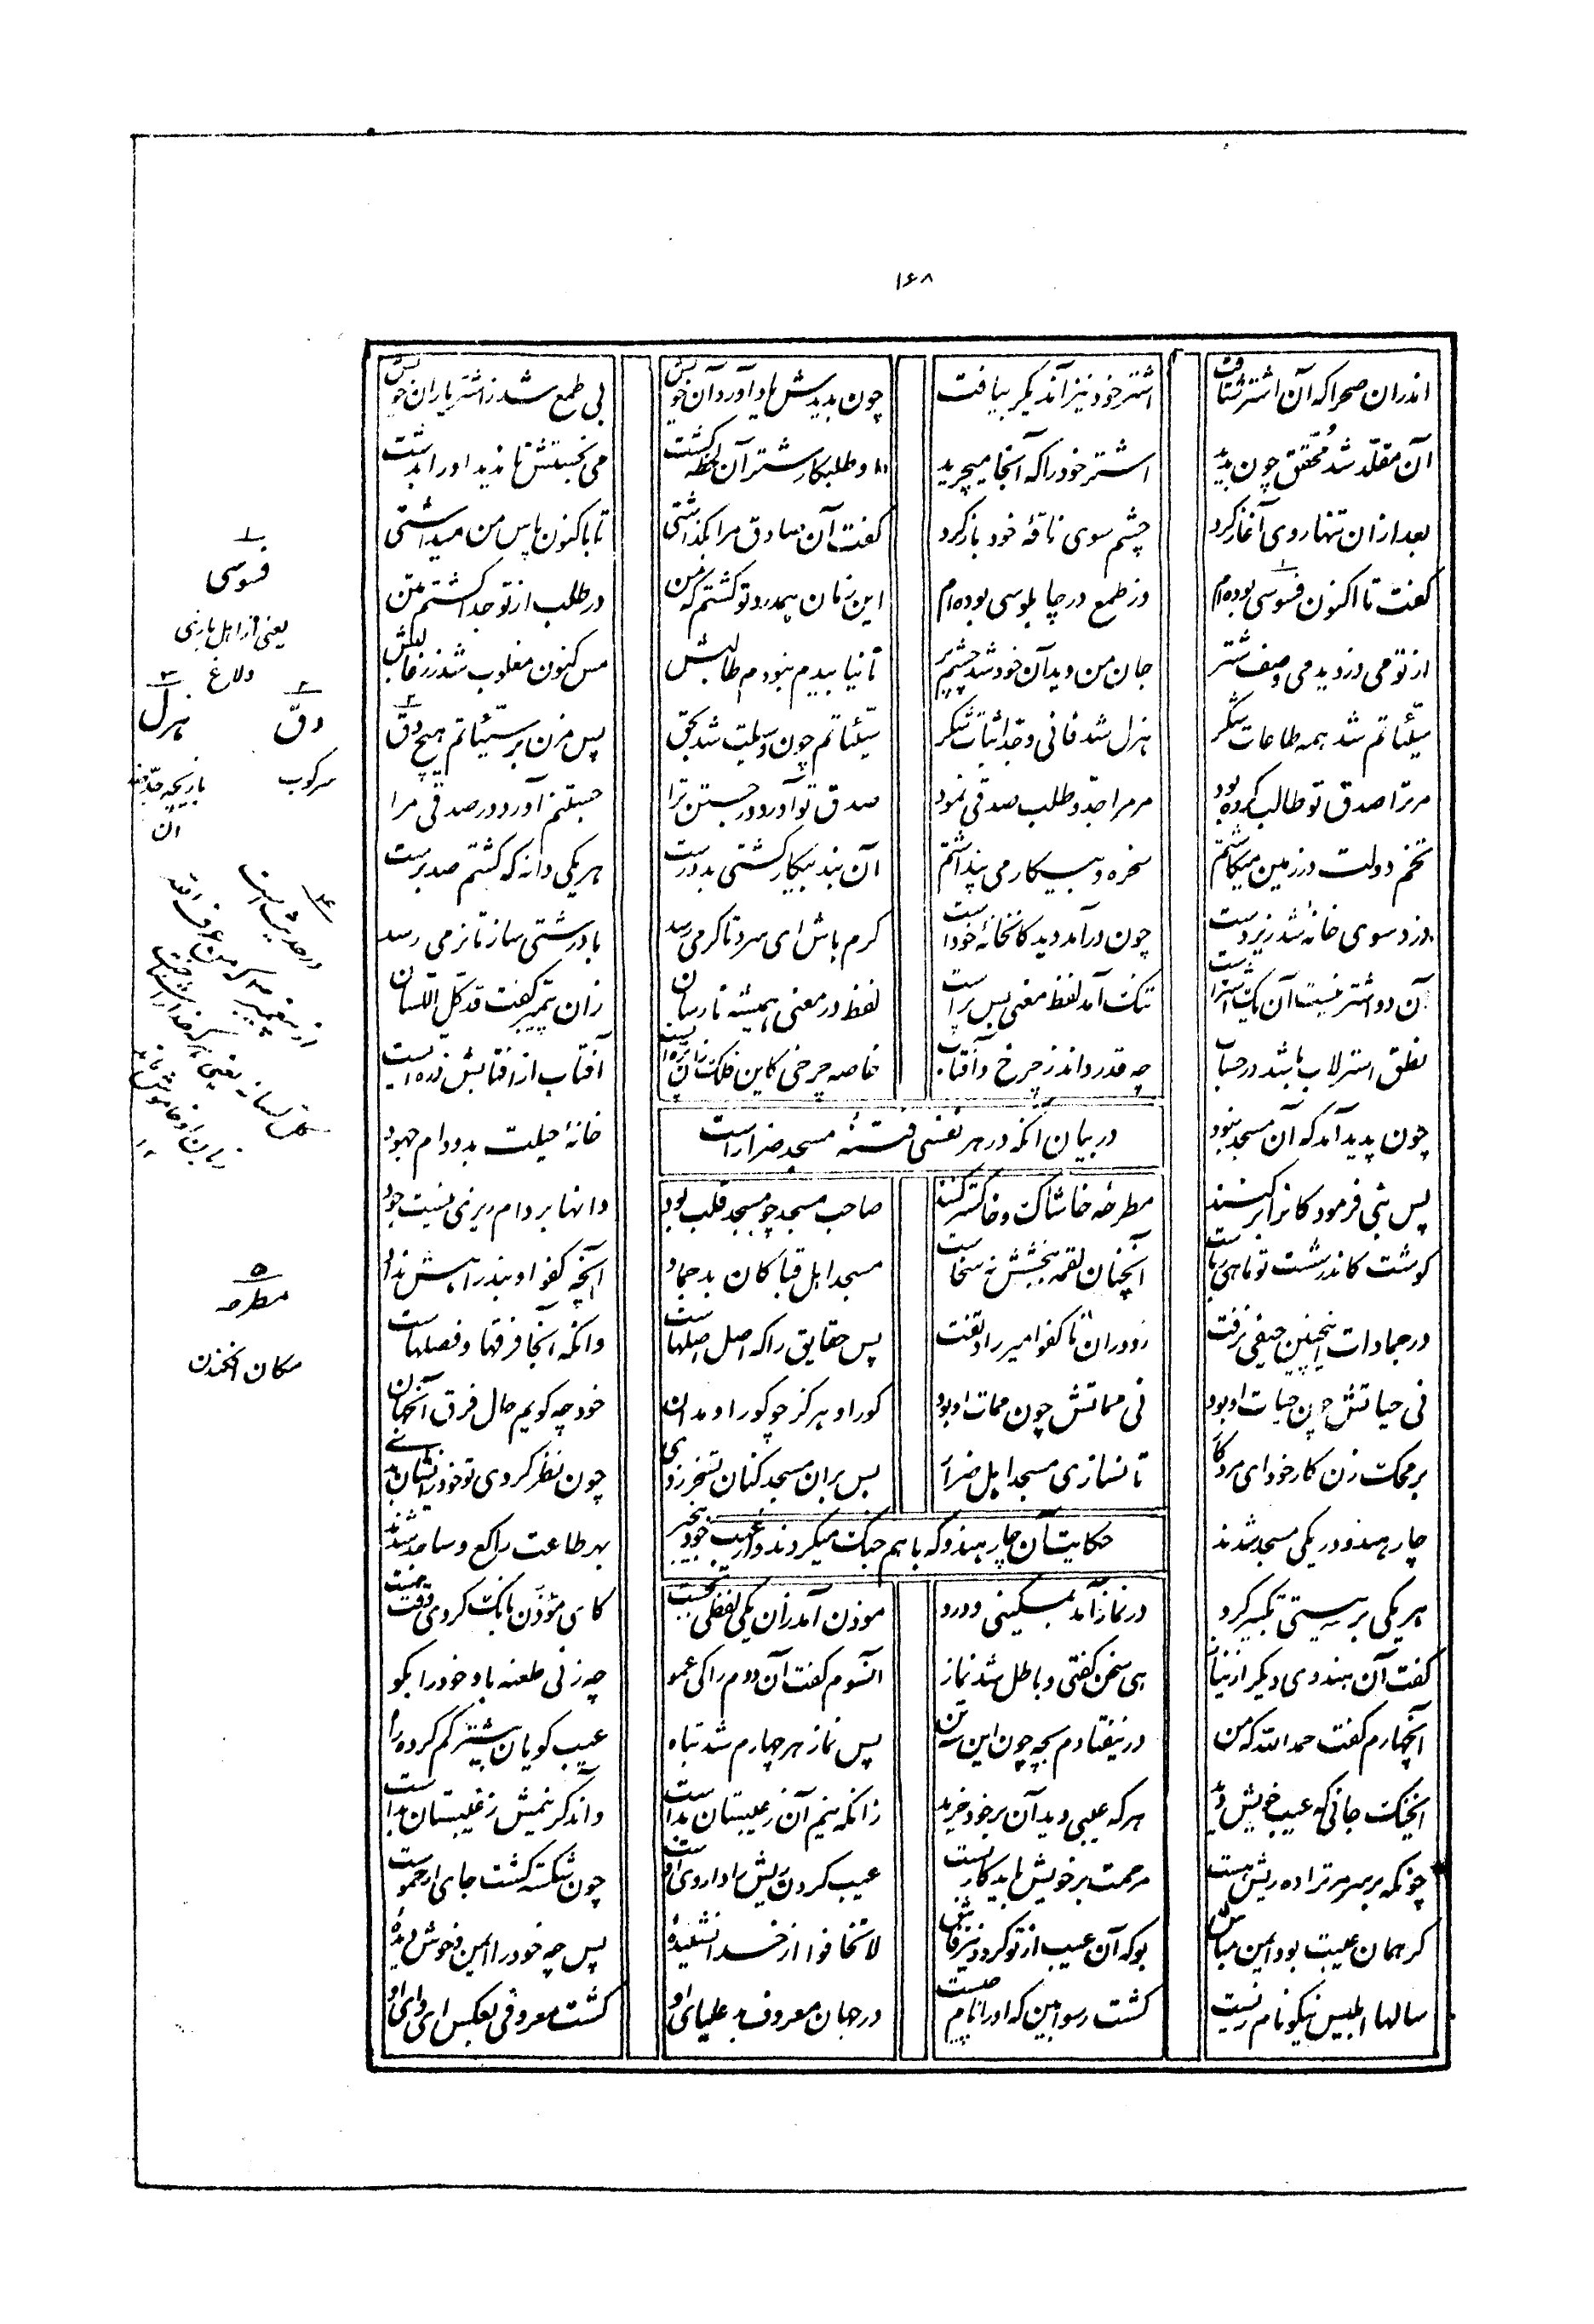 ۱۶۸
اندران صحرا که آن اشتر شتافت اشتر خود نیز آن دیگر بیافت چون بدیدش یاد آورد آن خویش بی طمع شد ز اشتر یاران خویش
آن مقلد شد محقق چون بدید اشتر خود را که آنجا میچرید او طلبکار شتر آن لحظه گشت می نجستش تا ندید او را بدشت
بعد ازان تنها روی آغاز کرد چشم سوی ناقهٔ خود باز کرد گفت آن صادق مرا بگذاشتی تا باکنون پاس من میداشتی
گفت تا اکنون فسوسی بوده‌ام وز طمع در چاپلوسی بوده‌ام این زمان همدرد تو گشتم که من در طلب از تو جدا گشتم بتن
از تو می دزدیدمی وصف شتر جان من دید آن خود شد چشم پر تا نیابیدم نبودم طالبش مس کنون مغلوب شد زر غالبش
سیّئاتم شد همه طاعات شکر هزل شد فانی و جد اثبات شکر سیّئاتم چون وسیلت شد بحق پس مزن بر سیّئاتم هیچ دق
مر ترا صدق تو طالب کرده بود مر مرا جد و طلب صدقی نمود صدق تو آورد در جستن ترا جستنم آورد در صدقی مرا
تخم دولت در زمین میکاشتم سخره و بیکار می پنداشتم آن نبد بیکار کشتی بد درست هر یکی دانه که کشتم صد برست
دزد سوی خانهٔ شد زیر دست چون درآمد دید کانخانهٔ خود است گرم باش ای سرد تا گرمی رسد با درشتی ساز تا نرمی رسد
آن دو اشتر نیست آن یک اشتر است تنگ آمد لفظ معنی بس پر است لفظ در معنی همیشه نارسان زان پیمبر گفت قد کلّ اللسان
نطق اسطرلاب باشد در حساب چه قدر داند ز چرخ و آفتاب خاصه چرخی کاین فلک زان پره ایست آفتاب از آفتابش ذره ایست
چون پدید آمد که آن مسجد نبود خانهٔ حیلت بد و دام جهود
در بیان آنکه در هر نفسی فتنهٔ مسجد ضرار است
پس نبی فرمود کانرا برکنند مطرحهٔ خاشاک و خاکستر کنند صاحب مسجد چو مسجد قلب بود دانها بر دام ریزی نیست جود
گوشت کاندر شست تو ماهی رباست آنچنان لقمه نه بخشش نه سخاست مسجد اهل قبا کان بد جماد آنچه کفو او نبد راهش نداد
در جمادات اینچنین حیفی نرفت زد دران ناکفو امیر داد نفت پس حقایق را که اصل اصلهاست دانکه آنجا فرقها و فصلهاست
نی حیاتش چون حیات او بود نی مماتش چون ممات او بود گور او هرگز چو گور او مدان خود چه گویم حال فرق آنجهان
بر محک زن کار خود ای مرد کار تا نسازی مسجد اهل ضرار بس بران مسجد کنان تسخر زدی چون نظر کردی تو خود زیشان بدی
چار هندو در یکی مسجد شدند بهر طاعت راکع و ساجد شدند
حکایت آن چار هندو که باهم جنگ میکردند و از عیب خود بیخبر
هر یکی بر نیتی تکبیر کرد در نماز آمد بمسکینی و درد موذن آمد زان یکی لفظی بجست کای موذن بانگ کردی وقت هست
گفت آن هندوی دیگر از نیاز هی سخن گفتی و باطل شد نماز آنسوم گفت آن دوم را کی عمو چه زنی طعنه باو خود را بگو
آنچهارم گفت حمد الله که من در نیفتادم بچه چون این سه تن پس نماز هر چهارم شد تباه عیب گویان بیشتر گم کرده راه
ایخنک جانی که عیب خویش دید هر که عیبی دید آن بر خود خرید زانکه نیم آن ز عیبستان بداست واندگر نیمش ز غیبستان بداست
چونکه بر سر مر ترا ده ریش هست مرهمت بر خویش باید کار بست عیب کردن ریش را داروی اوست چون شکسته گشت جای ارحمواست
گر همان عیبت بود ایمن مباش بوکه آن عیب از تو گردد نیز فاش لا تخافوا از خدا نشنیدهٔ پس چه خود را ایمن و خوش دیدهٔ
سالها ابلیس نیکو نام زیست گشت رسوا بین که او را نام چیست در جهان معروف بد علیای او گشت معروفی بعکس ای وای او
۱
فسوسی
یعنی از اهل بازی
ولاغ
۲
دق
سرکوب
۳
هزل
بازیچه جد ضد
آن
۴
در حدیث است
از پیغمبر که من عرف الله
کلّ لسانه یعنی هر که خدا را شناخت
زبان او خاموش ماند
۵
مطرحه
مکان افکندن